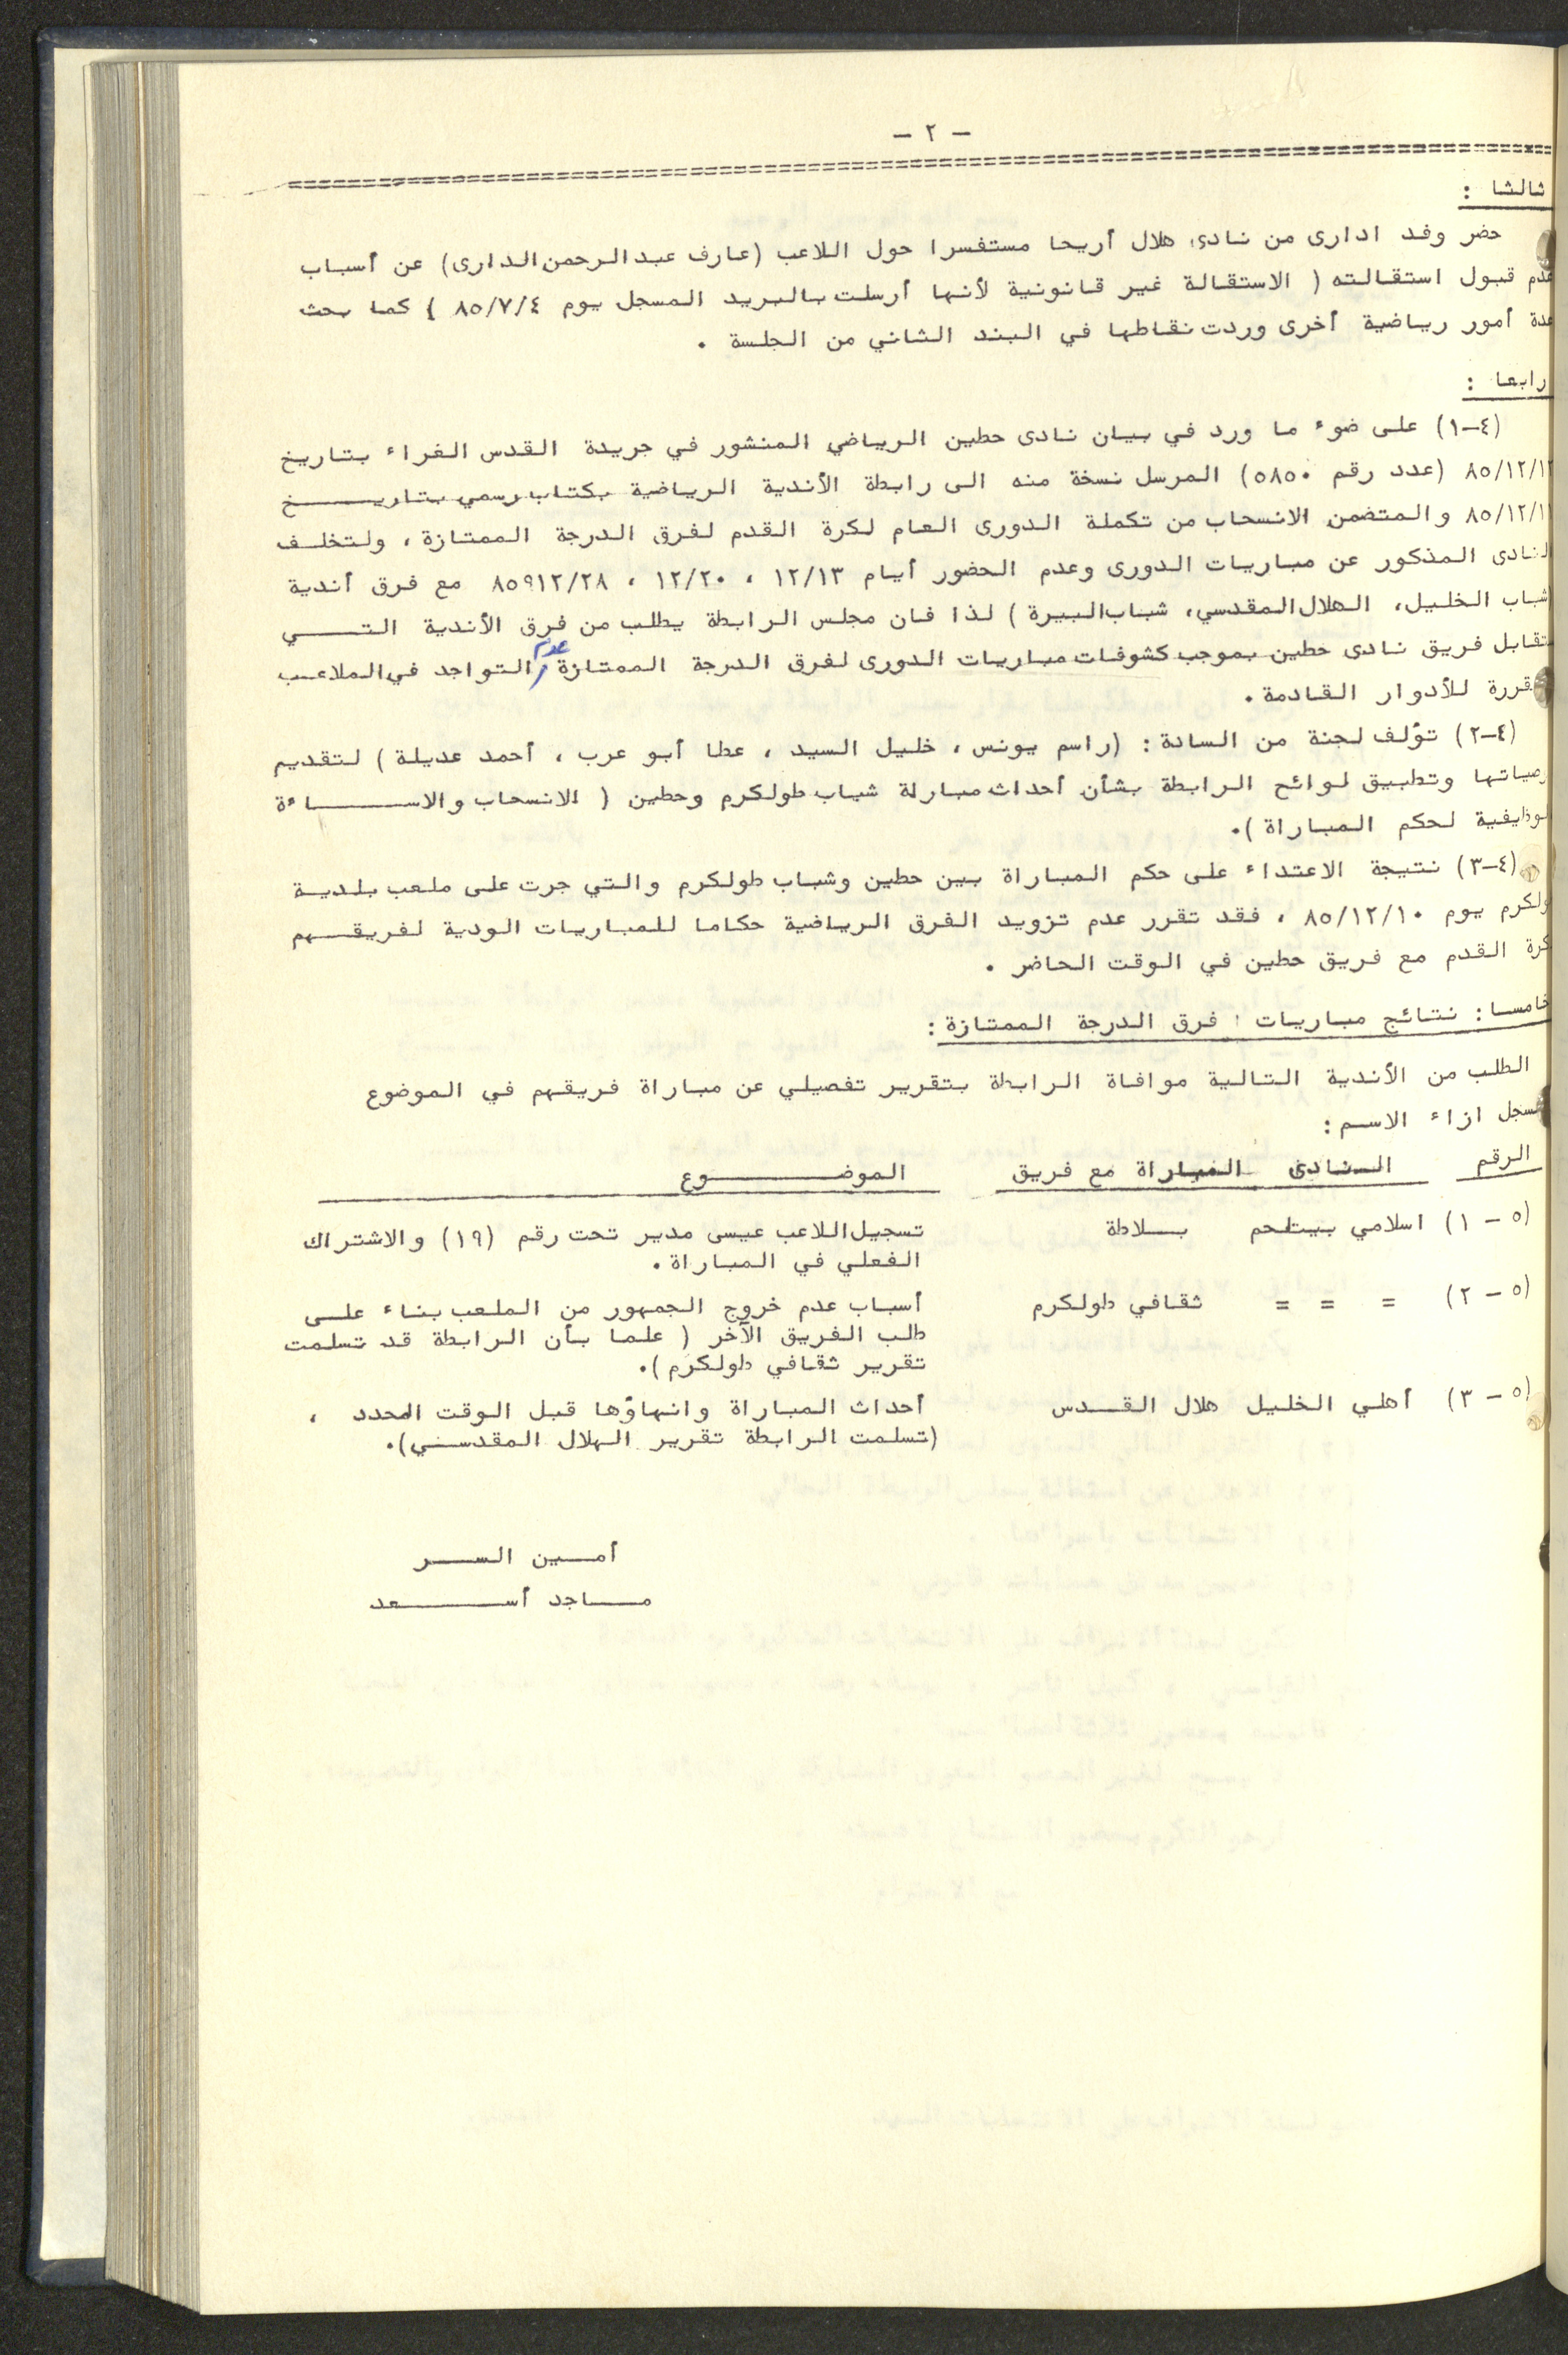 - ٢ -
ثالثا :
حضر وفد ادارى من نادى هلال أريحا مستفسرا حول اللاعب (عارف عبدالرحمن الدارى) عن أسباب
عدم قبول استقالته ( الاستقالة غير قانونية لأنها أرسلت بالبريد المسجل يوم ٨٥/٧/٤ ) كما بحث
عدة أمور رياضية أخرى وردت نقاطها في البند الثاني من الجلسة .
رابعا :
(٤-١) على ضوء ما ورد في بيان نادى حطين الرياضي المنشور في جريدة القدس الغراء بتاريخ
٨٥/١٢/١٢ (عدد رقم ٥٨٥٠) المرسل نسخة منه الى رابطة الأندية الرياضية بكتاب رسمي بتاريـــــخ
٨٥/١٢/١ والمتضمن الانسحاب من تكملة الدورى العام لكرة القدم لفرق الدرجة الممتازة ، ولتخلـف
لنادى المذكور عن مباريات الدورى وعدم الحضور أيام ١٢/١٣ ، ١٢/٢٠ ، ٨٥٩١٢/٢٨ مع فرق أندية
شباب الخليل، الهلال المقدسي، شباب البيرة ) لذا فان مجلس الرابطة يطلب من فرق الأندية التــــي
تقابل فريق نادى حطين بموجب كشوفات مباريات الدورى لفرق الدرجة الممتازة عدم التواجد في الملاعـب
قررة للأدوار القادمة .
(٤-٢) تؤلف لجنة من السادة : (راسم يونس ، خليل السيد ، عطا أبو عرب ، أحمد عديلة ) لتقديم
صياتها وتطبيق لوائح الرابطة بشأن أحداث مباراة شباب طولكرم وحطين ( الانسحاب والاســــاءة
لوظيفية لحكم المباراة ).
(٤-٣) نتيجة الاعتداء على حكم المباراة بين حطين وشباب طولكرم والتي جرت على ملعب بلديـة
ولكرم يوم ٨٥/١٢/١٠ ، فقد تقرر عدم تزويد الفرق الرياضية حكاما للمباريات الودية لفريقـــهم
كرة القدم مع فريق حطين في الوقت الحاضر .
خامسا : نتائج مباريات فرق الدرجة الممتازة :
الطلب من الأندية التالية موافاة الرابطة بتقرير تفصيلي عن مباراة فريقهم في الموضوع
سجل ازاء الاسم :
الرقم النادى المباراة مع فريق الموضـــــوع
(٥ - ١) اسلامي بيتلحم بــلاطة تسجيل اللاعب عيسى مدير تحت رقم (١٩) والاشتراك
الفعلي في المباراة .
(٥ - ٢) = = = ثقافي طولكرم أسباب عدم خروج الجمهور من الملعب بناء علـى
طلب الفريق الآخر ( علما بأن الرابطة قد تسلمت
تقرير ثقافي طولكرم ).
(٥ - ٣) أهلي الخليل هلال القــدس أحداث المباراة وانهاؤها قبل الوقت المحدد ،
(تسلمت الرابطة تقرير الهلال المقدسـي).
أمــين الســـر
مـــاجد أســــعد